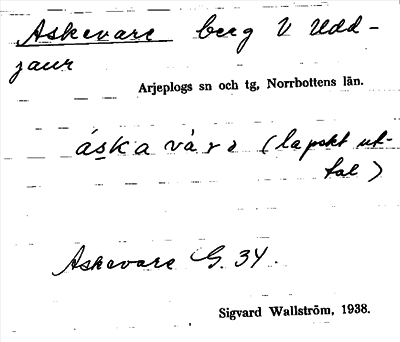 Askevare berg V Udd-
jaur
Arjeplogs sn och tg, Norrbottens län.
áska vàrə (lapskt ut-
tal)
Askevare G. 34.
Sigvard Wallström, 1938.